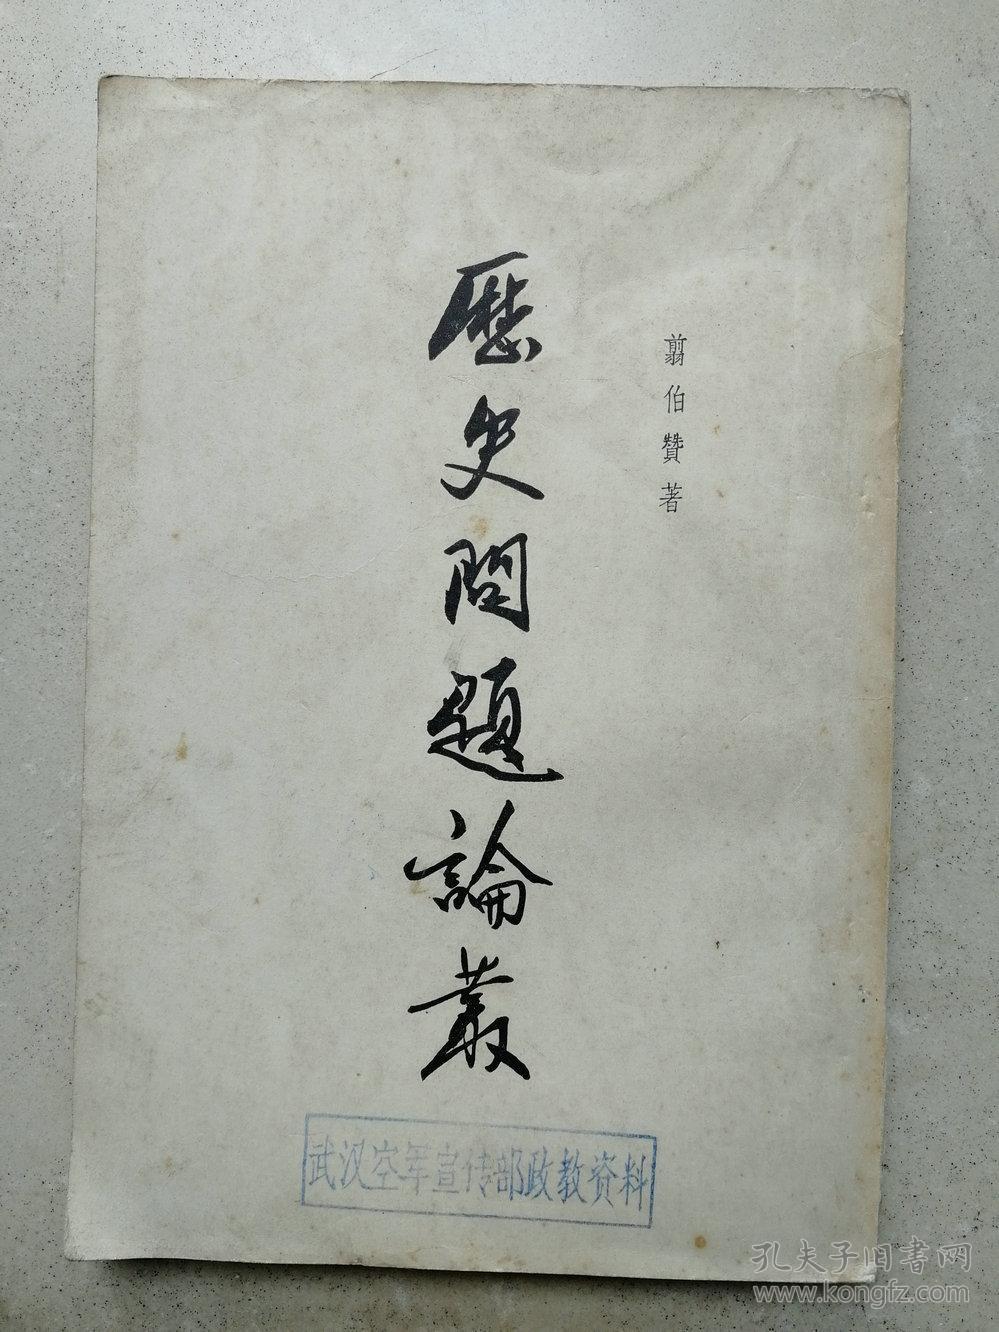 翦伯贊著
歷史問題論叢
武汉空军宣传部政教资料
孔夫子旧书网
www.kongfz.com